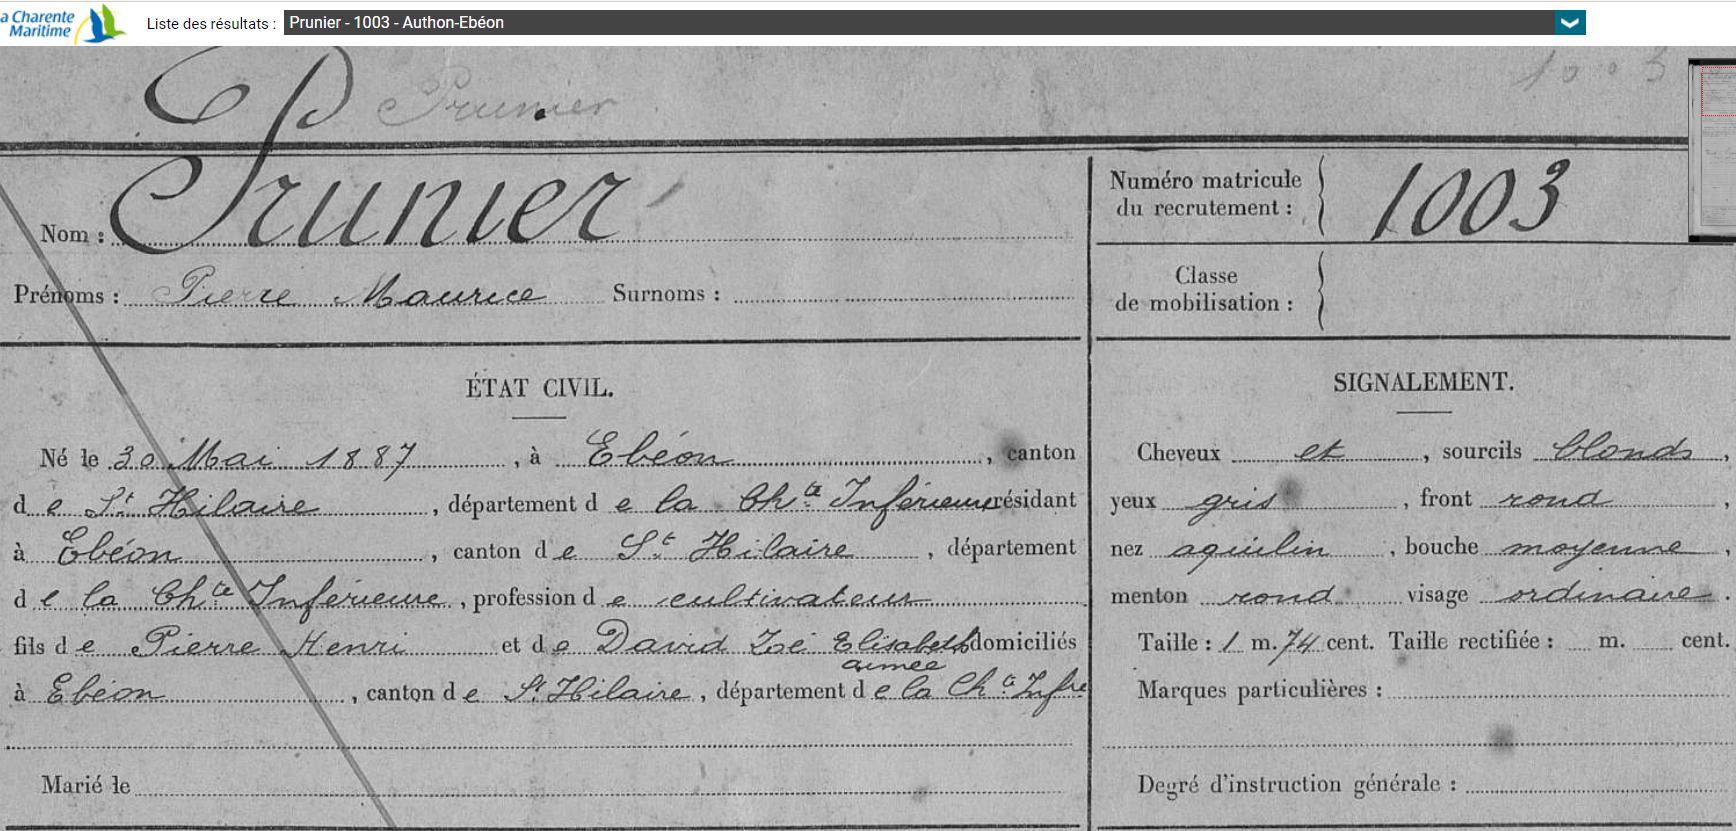 la Charente
Maritime
Liste des résultats : Prunier - 1003 - Authon-Ebéon
Prunier
1003
Nom : Prunier
Numéro matricule
du recrutement : 1003
Prénoms : Pierre Maurice Surnoms :
Classe
de mobilisation :
ÉTAT CIVIL.
Né le 30 Mai 1887, à Ebéon, canton
de St Hilaire, département de la Chte Inférieure résidant
à Ebéon, canton de St Hilaire, département
de la Chte Inférieure, profession de cultivateur
fils de Pierre Henri et de David Zoé Elisabeth domiciliés
aimée
à Ebéon, canton de St Hilaire, département de la Chte Infre
Marié le
SIGNALEMENT.
Cheveux et, sourcils blonds,
yeux gris, front rond,
nez aquilin, bouche moyenne,
menton rond visage ordinaire.
Taille : 1 m. 74 cent. Taille rectifiée : m. cent.
Marques particulières :
Degré d'instruction générale :